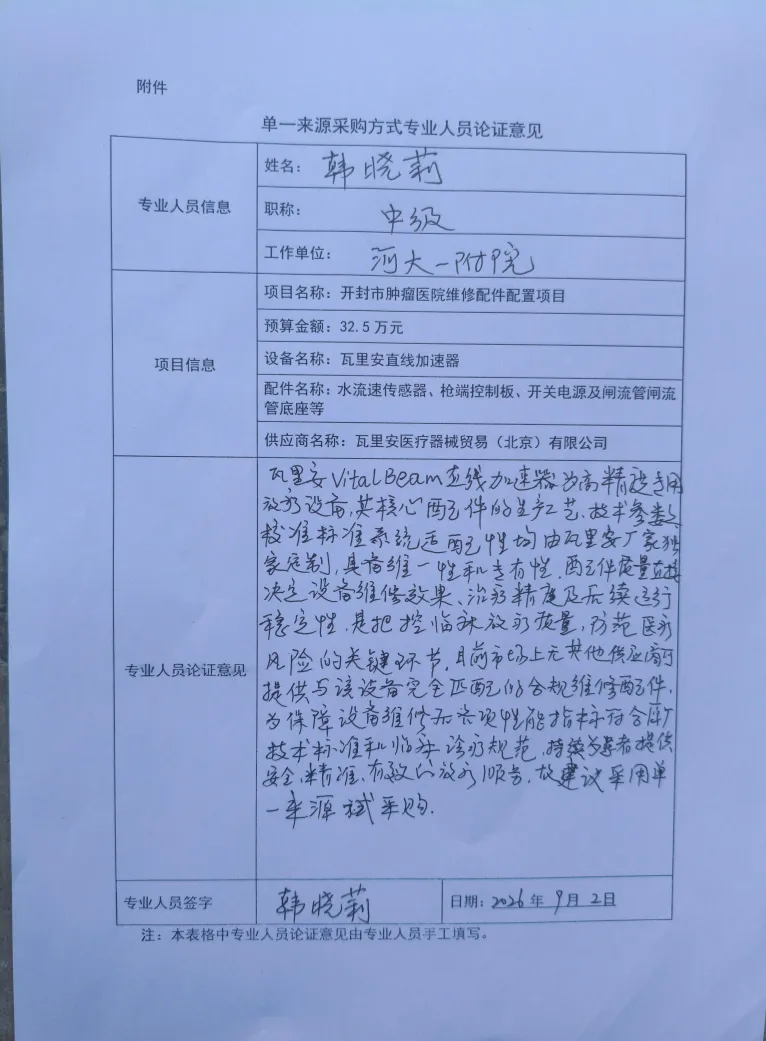 附件
单一来源采购方式专业人员论证意见
专业人员信息
姓名：韩晓莉
职称：中级
工作单位：河大一附院
项目信息
项目名称：开封市肿瘤医院维修配件配置项目
预算金额：32.5万元
设备名称：瓦里安直线加速器
配件名称：水流速传感器、枪端控制板、开关电源及闸流管闸流
管底座等
供应商名称：瓦里安医疗器械贸易（北京）有限公司
专业人员论证意见
瓦里安VitalBeam直线加速器为高精度专用
放疗设备，其核心配件的生产工艺、技术参数、
校准标准系统适配性均由瓦里安厂家独
家定制，具备唯一性和专有性，配件质量直接
决定设备维修效果、治疗精度及后续运行
稳定性，是把控临床放疗质量，防范医疗
风险的关键环节，目前市场上无其他供应商可
提供与该设备完全匹配的合规维修配件，
为保障设备维修后各项性能指标符合原厂
技术标准和临床诊疗规范，持续为患者提供
安全、精准、有效的放疗服务，故建议采用单
一来源式采购.
专业人员签字
韩晓莉
日期：2026年9月2日
注：本表格中专业人员论证意见由专业人员手工填写。